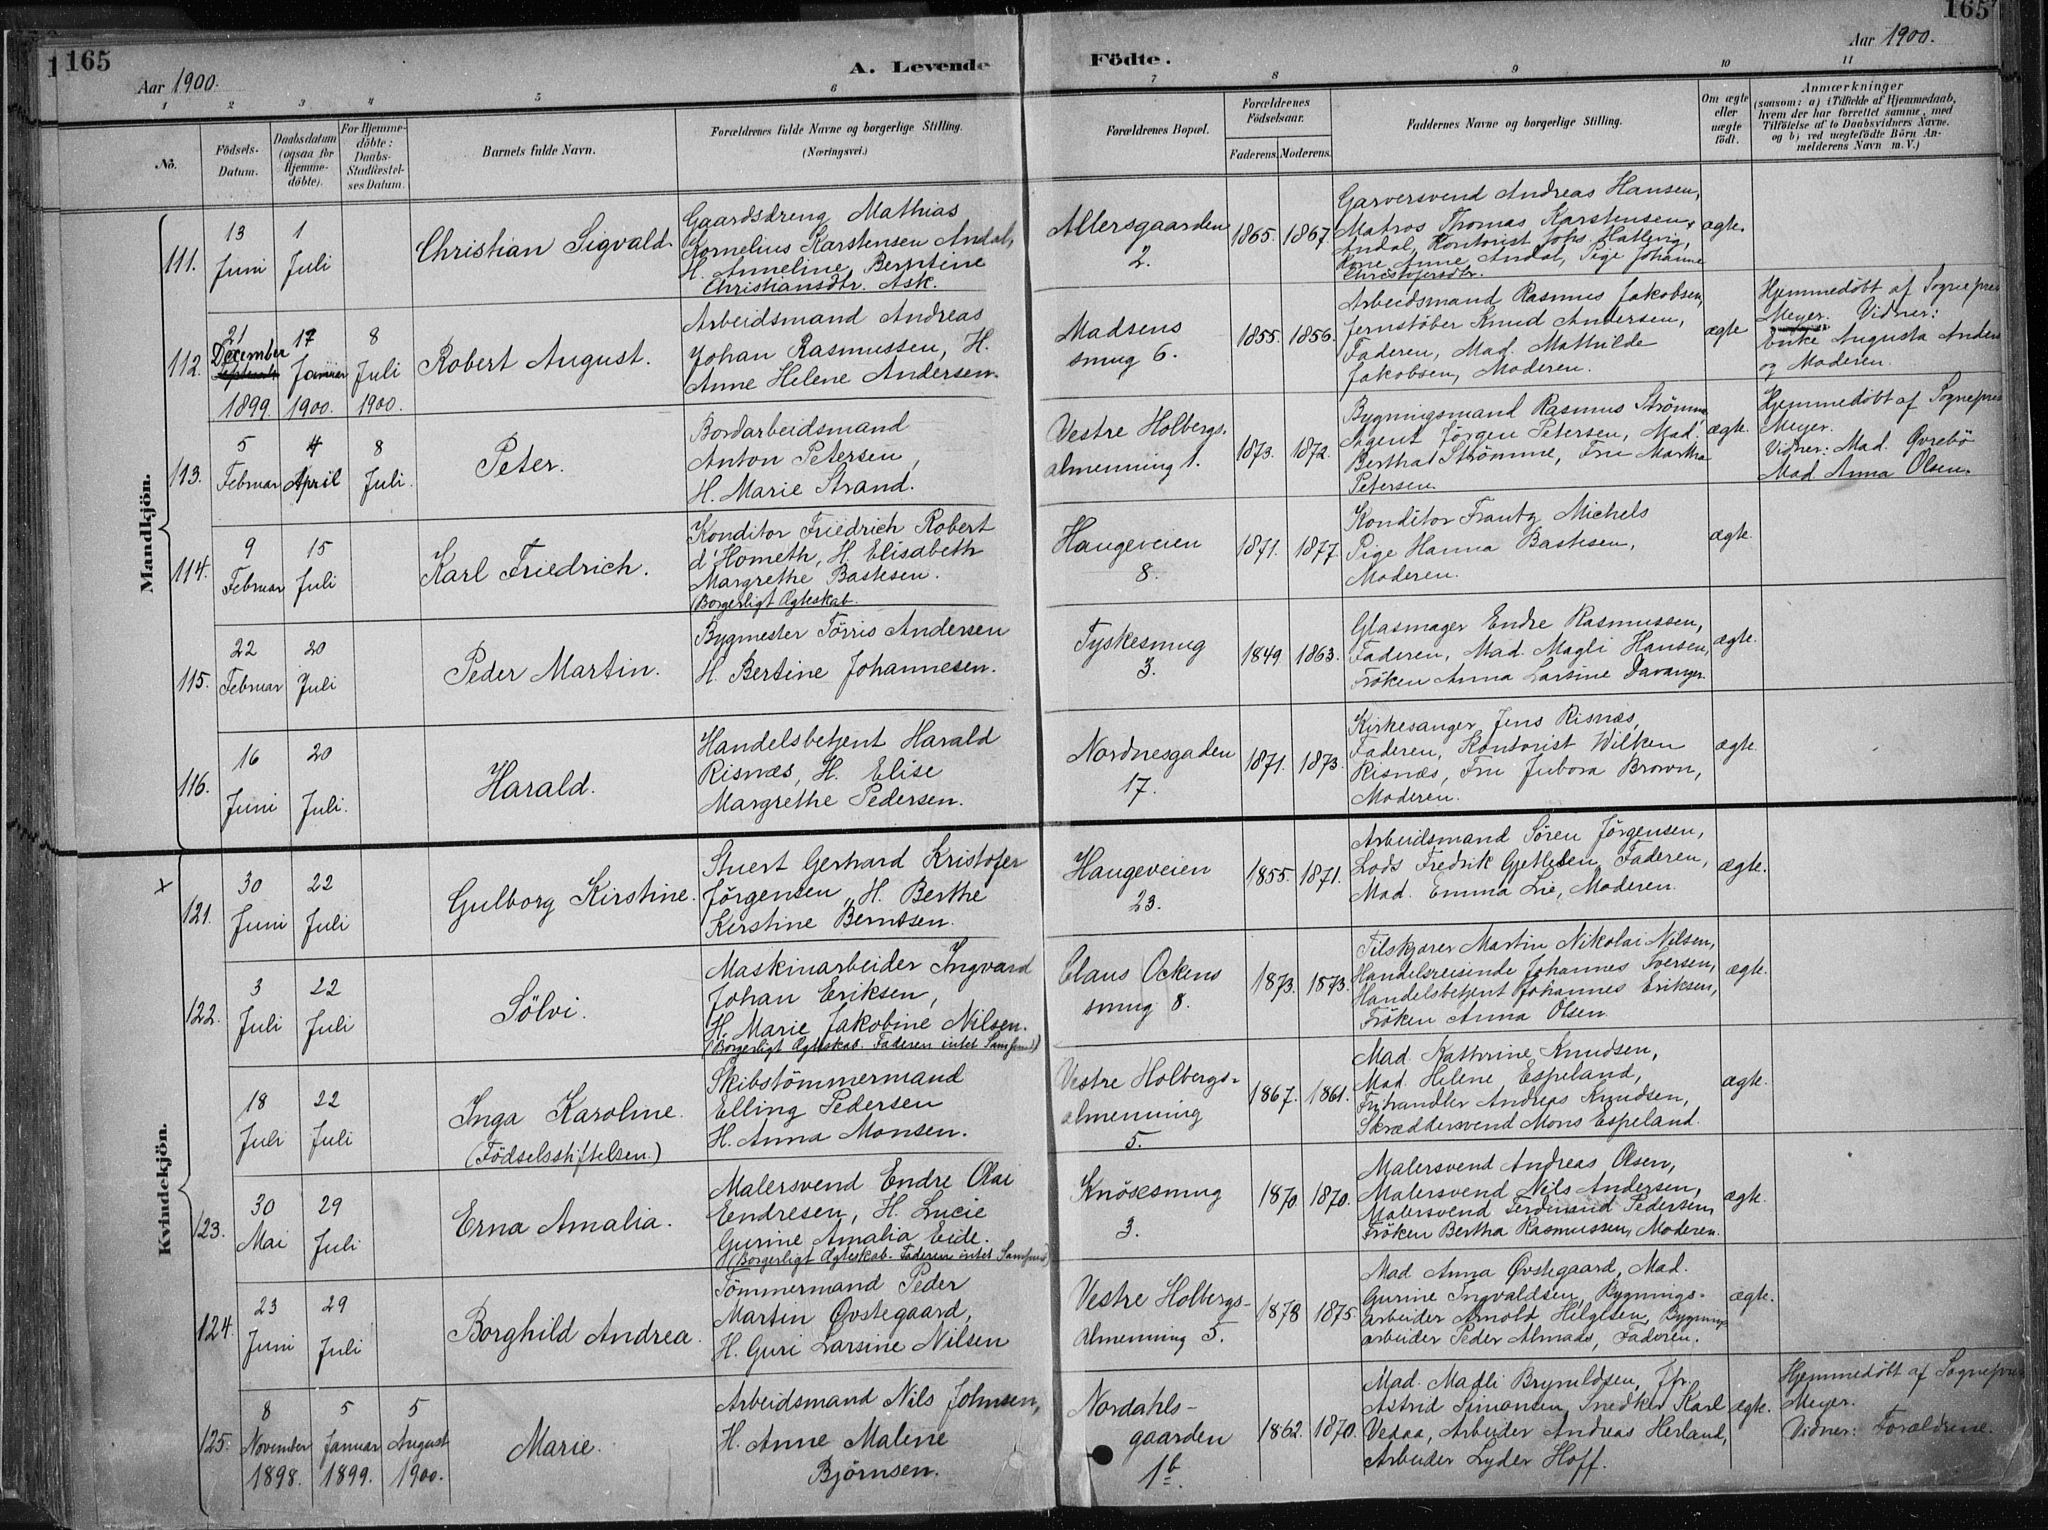 165
Aar 1900.
A. Levende Födte.
Aar 1900.
165
1 2 3 4 5 6 7 8 9 10 11
No.
Födsels-Datum.
Daabsdatum (ogsaa for Hjemmedöbte).
For Hjemmedöbte: Daabs-Stadfæstelses Datum.
Barnets fulde Navn.
Forældrenes fulde Navne og borgerlige Stilling.
(Næringsvei.)
Forældrenes Bopæl.
Forældrenes Födselsaar.
Faderens. Moderens.
Faddernes Navne og borgerlige Stilling.
Om ægte eller uægte födt.
Anmærkninger
(saasom: a) i Tilfælde af Hjemmedaab, hvem der har forrettet samme, med Tilföielse af to Daabsvidners Navne, og b) ved uægtefödte Börn Anmelderens Navn m. V.)
Mandkjön.
111.
13 Juni
1 Juli
Christian Sigvald.
Gaardsdreng Mathias
Cornelius Karstensen Andal,
H. Anneline Berntine
Christiansdtr. Ask.
Allersgaarden
2.
1865. 1867.
Garversvend Andreas Hansen,
Matros Thomas Karstensen
Andal, Kontorist Johs Hatlevig,
Kone Anne Andal, Pige Johanne
Christofersdtr.
ægte.
112.
21 December 1899.
17 Januar 1900.
8 Juli 1900.
Robert August.
Arbeidsmand Andreas
Johan Rasmussen, H.
Anne Helene Andersen.
Madsens
smug 6.
1855. 1856.
Arbeidsmand Rasmus Jakobsen,
Jernstøber Knud Andersen,
Faderen, Mad. Mathilde
Jakobsen, Moderen.
ægte
Hjemmedøbt af Sognepres
Meyer. Vidner:
enke Augusta Anders
og Moderen.
113.
5 Februar
4 April
8 Juli.
Peter.
Bordarbeidsmand
Anton Petersen,
H. Marie Strand.
Vestre Holbergs-
almenning 1.
1873. 1872.
Bygningsmand Rasmus Strømme,
Agent Jørgen Petersen, Mad.
Bertha Strømme, Fru Martha
Petersen.
ægte.
Hjemmedøbt af Sognepres
Meyer.
Vidner: Mad. Øvrebö
Mad. Anna Olsen.
114.
9 Februar
15 Juli
Karl Friedrich.
Konditor Friedrich Robert
d'Hometh, H. Elisabeth
Margrethe Bastesen.
(Borgerligt Ægteskab.
Haugeveien
8.
1871. 1877.
Konditor Frantz Michels
Pige Hanna Bastesen,
Moderen.
ægte.
115.
22 Februar
20 Juli
Peder Martin.
Bygmester Tørris Andersen
H. Bertine Johannesen.
Tyskesmug
3.
1849 1863.
Glasmager Endre Rasmussen,
Faderen, Mad. Magli Hansen,
Frøken Anna Larsine Davanger.
ægte.
116.
16 Juni
20 Juli.
Harald.
Handelsbetjent Harald
Risnæs, H. Elise
Margrethe Pedersen.
Nordnesgaden
17.
1871. 1873.
Kirkesanger Jens Risnæs,
Faderen, Kontorist Wilken
Risnæs, Fru Jubora Brown,
Moderen.
ægte.
Kvindekjön.
x
121.
30 Juni
22 Juli
Gulborg Kirstine.
Stuert Gerhard Kristofer
Jørgensen, H. Berthe
Kirstine Berntsen.
Haugeveien
23.
1855. 1871.
Arbeidsmand Søren Jørgensen,
Lods Fredrik Gjetlesen, Faderen,
Mad. Emma Lie, Moderen.
ægte.
122.
3 Juli
22 Juli
Sølvi.
Maskinarbeider Ingvard
Johan Eriksen,
H. Marie Jakobine Nilsen.
(Borgerligt Ægteskab. Faderen intet Samfund)
Claus Ockens
smug 8.
1873. 1873.
Filskjærer Martin Nikolai Nilsen,
Handelsreisende Johannes Iversen,
Handelsbetjent Johannes Eriksen,
Frøken Anna Olsen
ægte.
18 Juli
22 Juli
Inga Karoline.
(Födselsstiftelsen.)
Skibstømmermand
Elling Pedersen
H. Anna Monsen.
Vestre Holbergs-
almenning
5.
1867. 1861.
Mad. Kathrine Knudsen,
Mad. Helene Espeland,
Frihandler Andreas Knudsen,
Skræddersvend Mons Espeland.
ægte.
123.
30 Mai
29 Juli
Erna Amalia.
Malersvend Endre Olai
Endresen, H. Lucie
Gurine Amalia Eide.
(Borgerligt Ægteskab. Faderen intet Samfund)
Knøsesmug
3.
1870. 1870.
Malersvend Andreas Olsen,
Malersvend Nils Andersen,
Malersvend Ferdinand Pedersen,
Frøken Bertha Rasmussen, Moderen.
ægte.
124.
23 Juni
29 Juli
Borghild Andrea.
Tømmermand Peder
Martin Øvstegaard,
H. Guri Larsine Nilsen
Vestre Holbergs-
almenning 5.
1878 1875.
Mad Anna Øvstegaard, Mad.
Gurine Ingvaldsen, Bygnings-
arbeider Arnold Hilgesen, Bygnings
arbeider Peder Almaas, Faderen.
ægte.
125.
8 November 1898.
5 Januar 1899.
5 August 1900.
Marie.
Arbeidsmand Nils Johnsen,
H. Anne Malene
Bjørnsen.
Nordahls-
gaarden
1b.
1862. 1870.
Mad. Madli Brynildsen, Jfr.
Astrid Simonsen, Snedker Karl
Vedaa, Arbeider Andreas Herland,
Arbeider Lyder Hoff.
ægte.
Hjemmedöbt af Sognepres
Meyer.
Vidner: Forældrene.